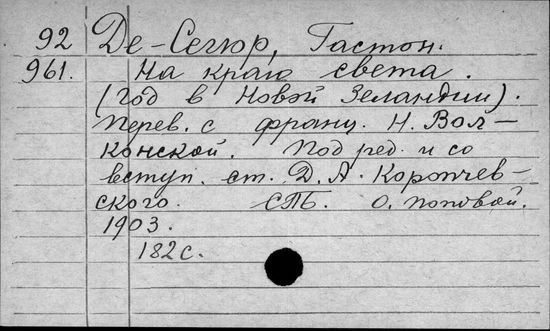 92 Де-Сегюр, Гастон.
961. На краю света.
(Год в Новой Зеландии).
Перев. с франц. Н. Вол-
конской. Под ред. и со
вступ. ст. Д. А. Коропчев-
ского. СПБ. О. Поповой.
1903.
182 с.